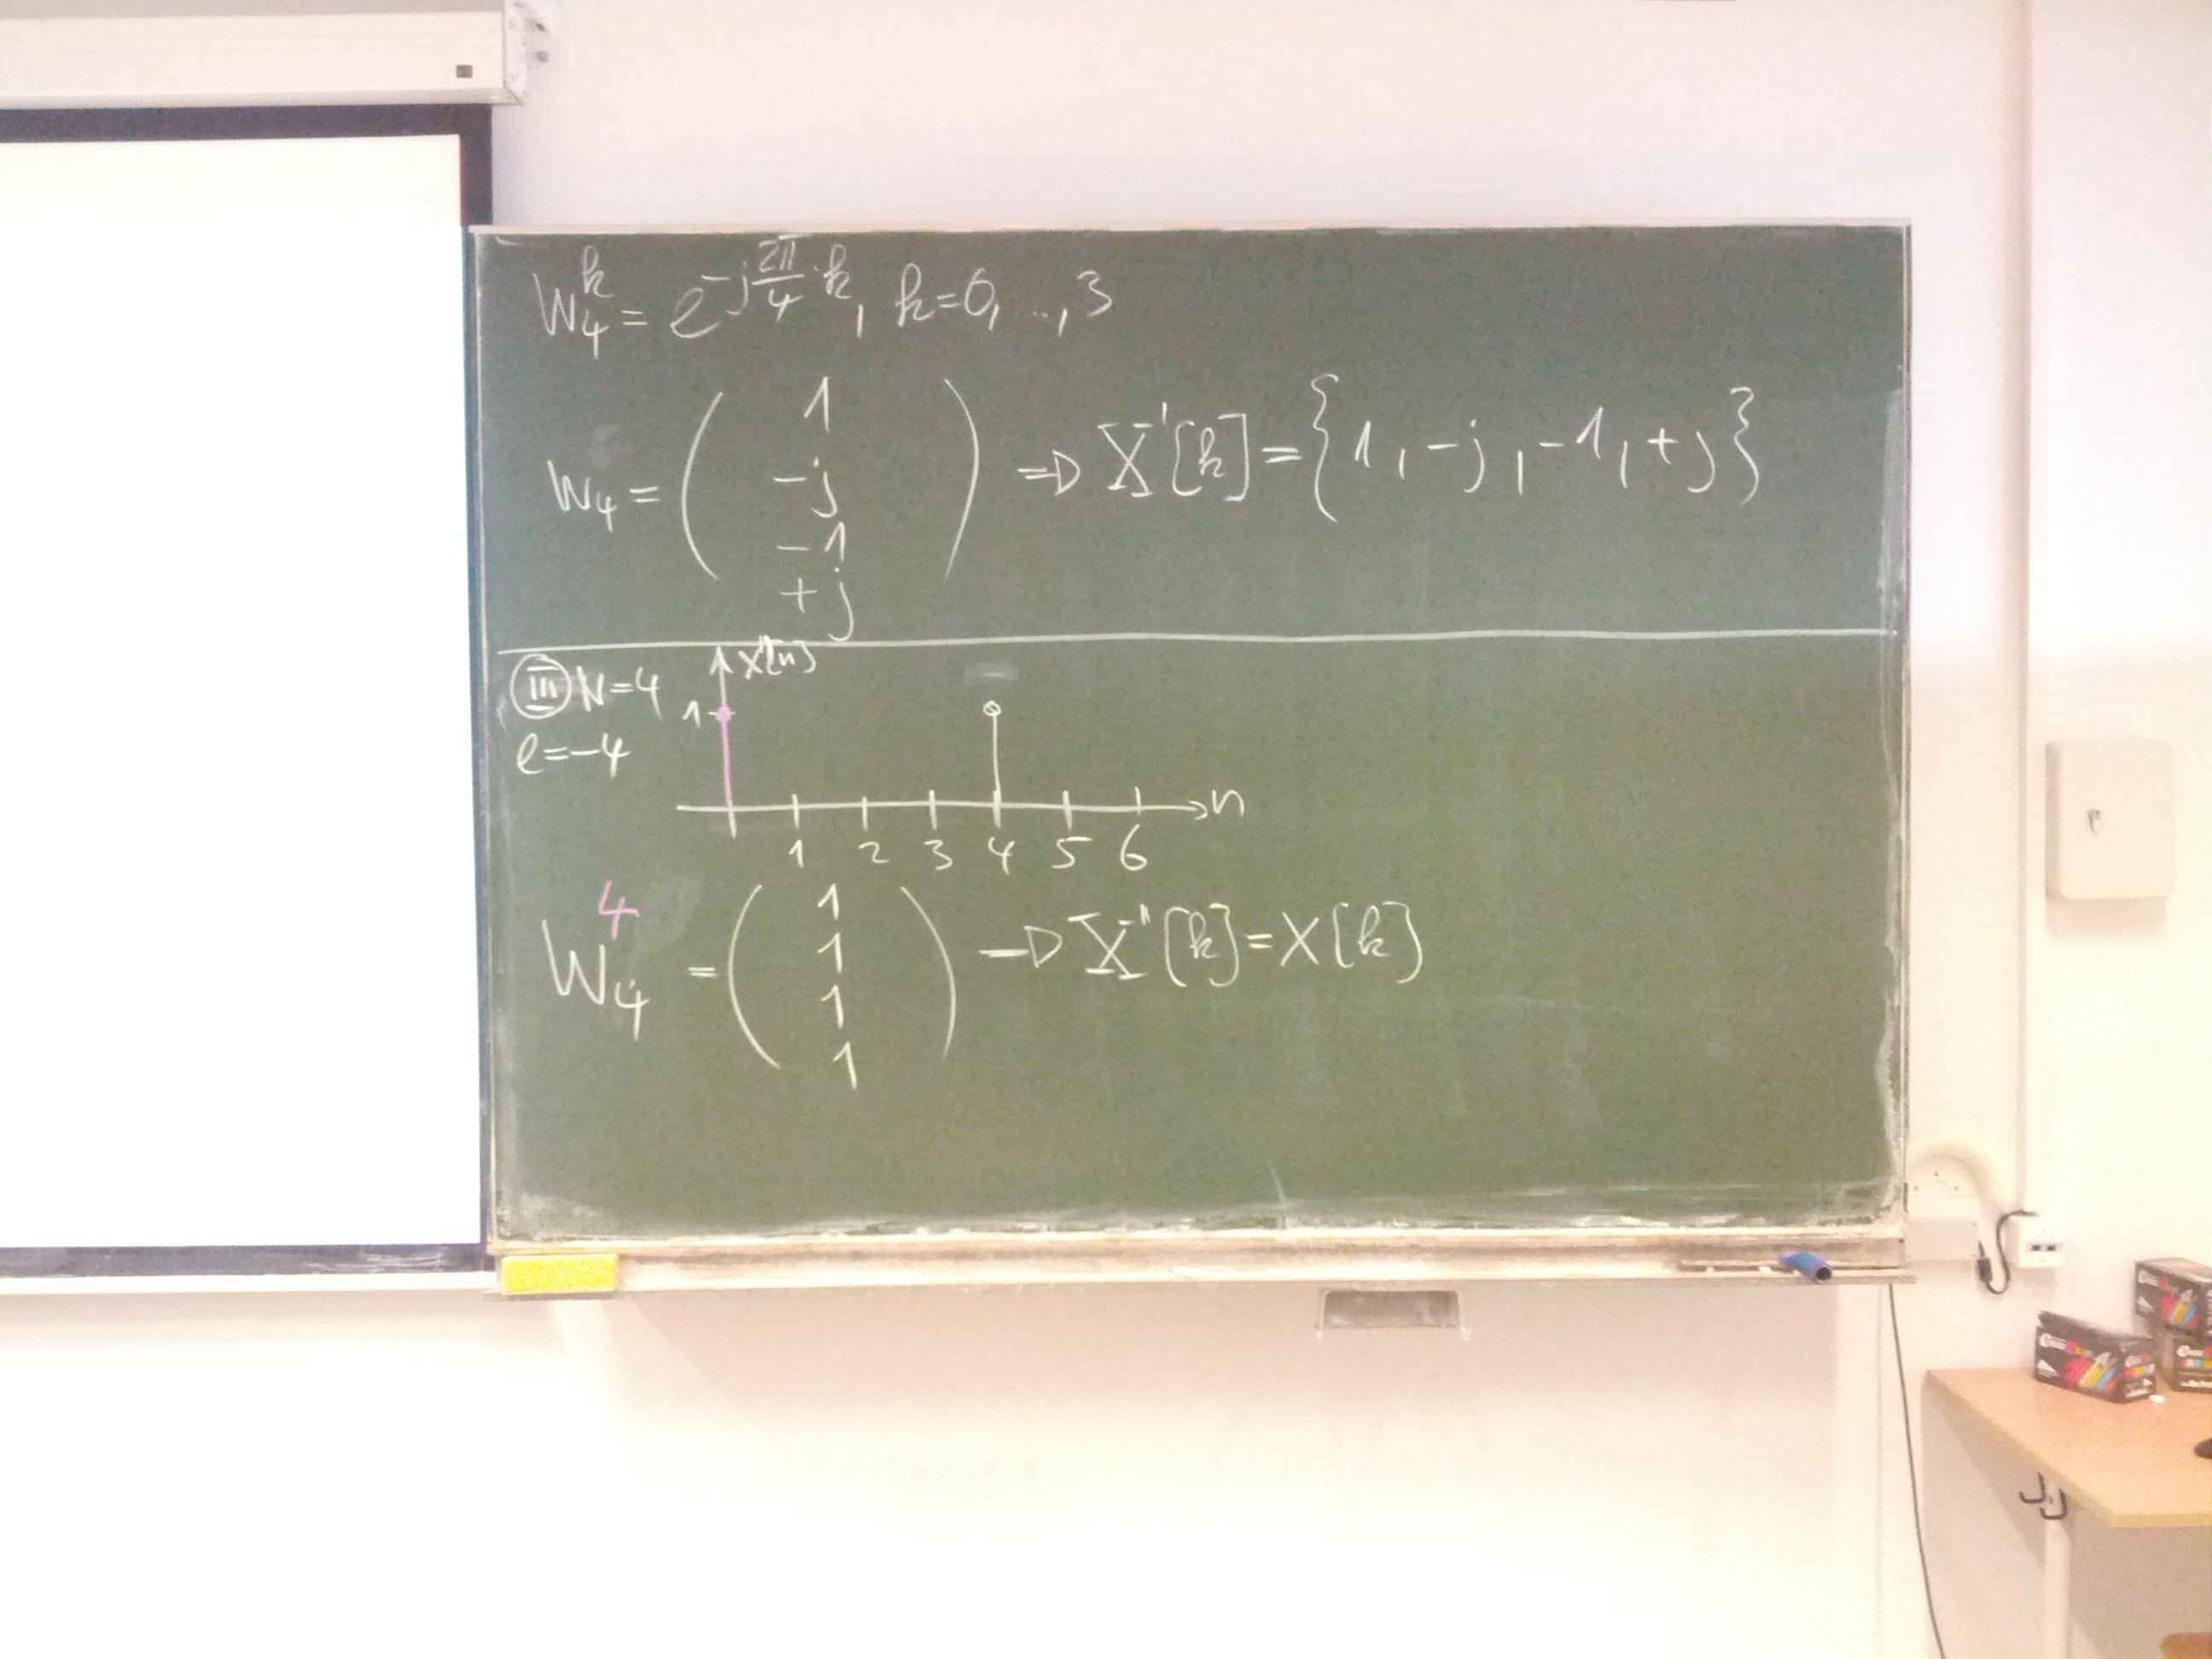 W₄ᵏ = e^(-j 2π/4 · k), k=0, ..., 3
W₄ = ( 1 -j -1 +j ) ⇒ X'[k] = {1, -j, -1, +j}
III N=4
x''[n]
1
l=-4
n
1 2 3 4 5 6
W₄⁴ = ( 1 1 1 1 ) → X''[k] = X[k]